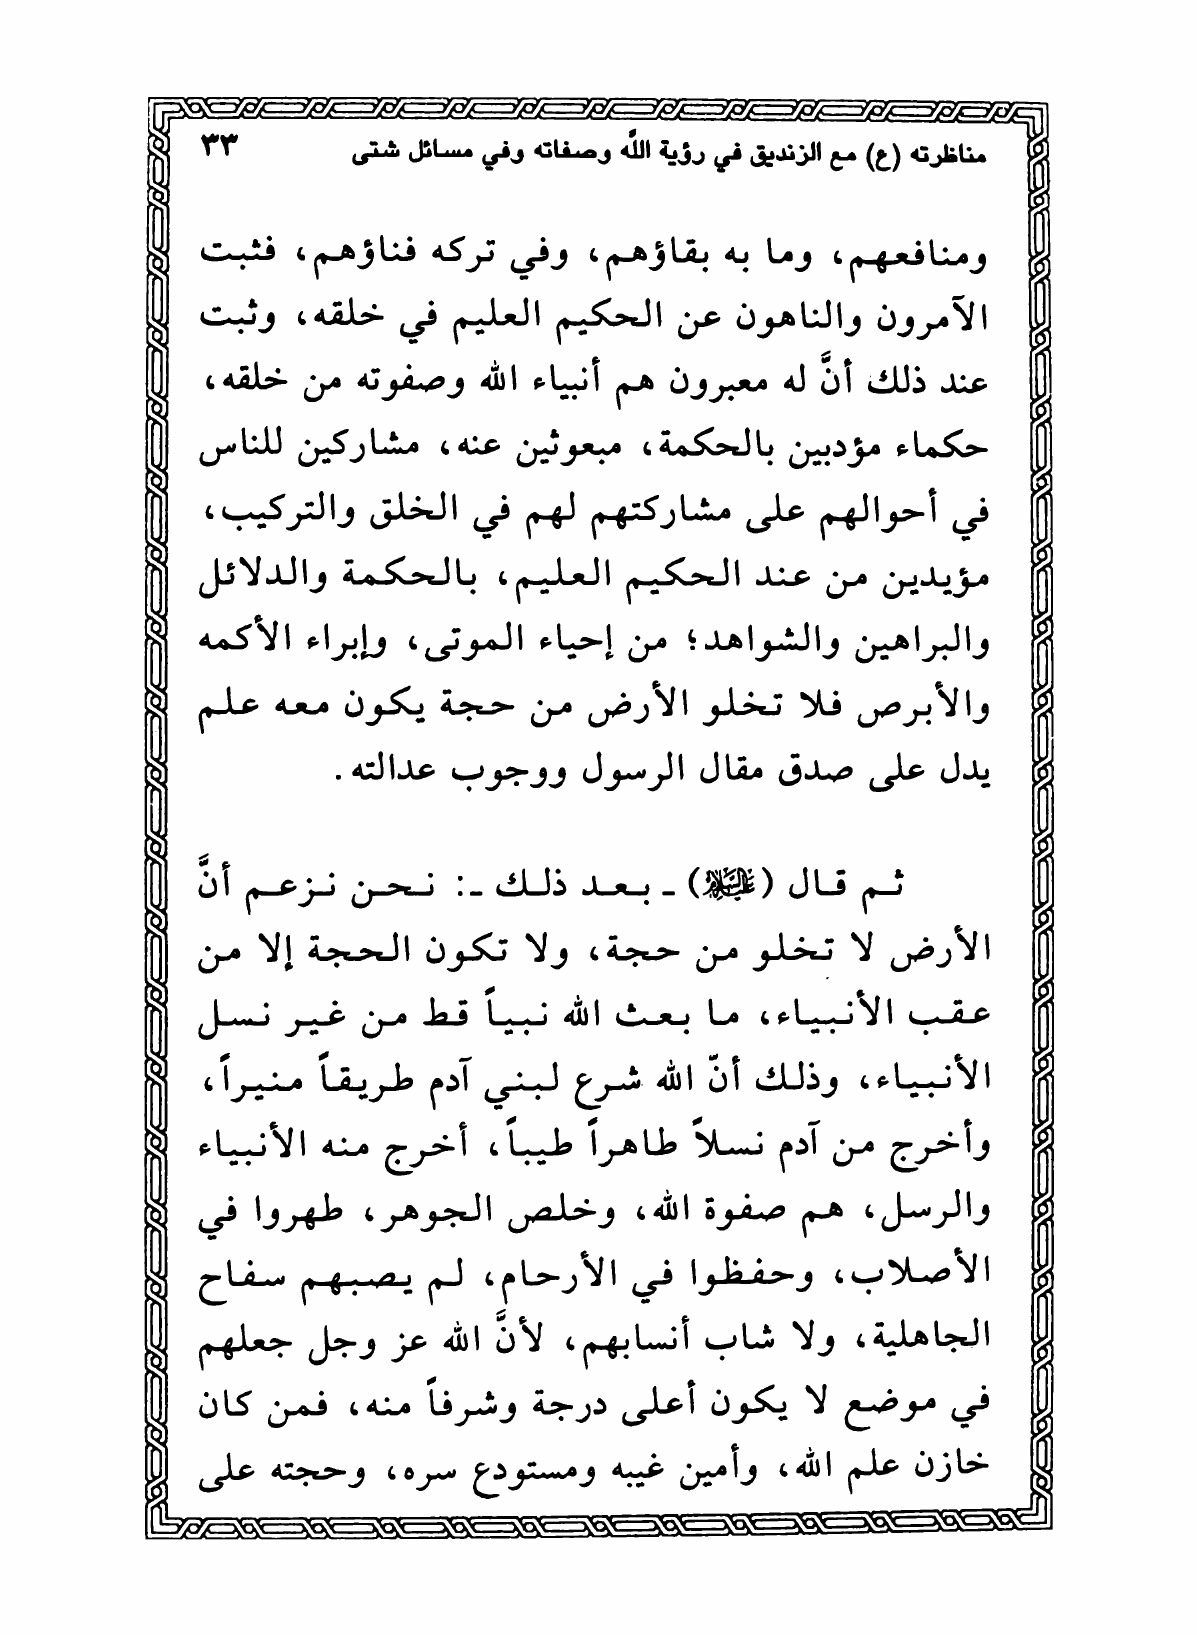 مناظرته (ع) مع الزنديق في رؤية اللَّه وصفاته وفي مسائل شتى ٣٣
ومنافعهم، وما به بقاؤهم، وفي تركه فناؤهم، فثبت
الآمرون والناهون عن الحكيم العليم في خلقه، وثبت
عند ذلك أنَّ له معبرون هم أنبياء الله وصفوته من خلقه،
حكماء مؤدبين بالحكمة، مبعوثين عنه، مشاركين للناس
في أحوالهم على مشاركتهم لهم في الخلق والتركيب،
مؤيدين من عند الحكيم العليم، بالحكمة والدلائل
والبراهين والشواهد؛ من إحياء الموتى، وإبراء الأكمه
والأبرص فلا تخلو الأرض من حجة يكون معه علم
يدل على صدق مقال الرسول ووجوب عدالته.
ثم قال (عليه السلام) ـ بعد ذلك ـ: نحن نزعم أنَّ
الأرض لا تخلو من حجة، ولا تكون الحجة إلا من
عقب الأنبياء، ما بعث الله نبياً قط من غير نسل
الأنبياء، وذلك أنّ الله شرع لبني آدم طريقاً منيراً،
وأخرج من آدم نسلاً طاهراً طيباً، أخرج منه الأنبياء
والرسل، هم صفوة الله، وخلص الجوهر، طهروا في
الأصلاب، وحفظوا في الأرحام، لم يصبهم سفاح
الجاهلية، ولا شاب أنسابهم، لأنَّ الله عز وجل جعلهم
في موضع لا يكون أعلى درجة وشرفاً منه، فمن كان
خازن علم الله، وأمين غيبه ومستودع سره، وحجته على